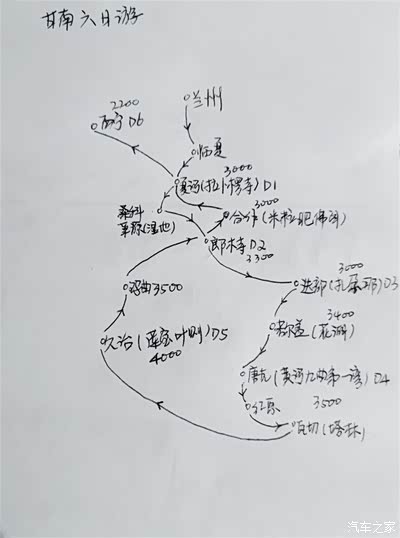 甘南六日游
兰州
2200
西宁 D6
临夏
3000
夏河(拉卜楞寺) D1
3000
合作(米拉肥佛阁)
桑科
草原(湿地)
郎木寺 D2
3300
3000
迭部(扎尕那) D3
玛曲 3500
3400
若尔盖(花湖)
久治(莲宝叶则) D5
4000
唐克(黄河九曲第一湾) D4
红原
3500
瓦切(塔林)
汽车之家